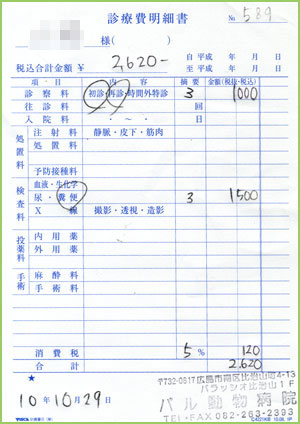 診療費明細書
№ 589
様( )
自 平成 年 月 日
至 平成 年 月 日
税込合計金額 ¥ 2,620-
項 目 内 容 摘 要 金額(税抜・税込)
診察料 初診・再診・時間外特診 3 1000
往診料 回
入院料 ～ 日
処置料 注射料 静脈・皮下・筋肉
処置料
予防接種料
検査料 血液・生化学
尿・糞便 3 1500
X 線 撮影・透視・造影
投薬料 内用薬
外用薬
手術 麻酔料
手術料
消費税 5% 120
合計 2,620
★
10 10 29
〒732-0817 広島市南区比治山町4-13
パラッシオ比治山1F
パル動物病院
TEL・FAX 082-263-2393